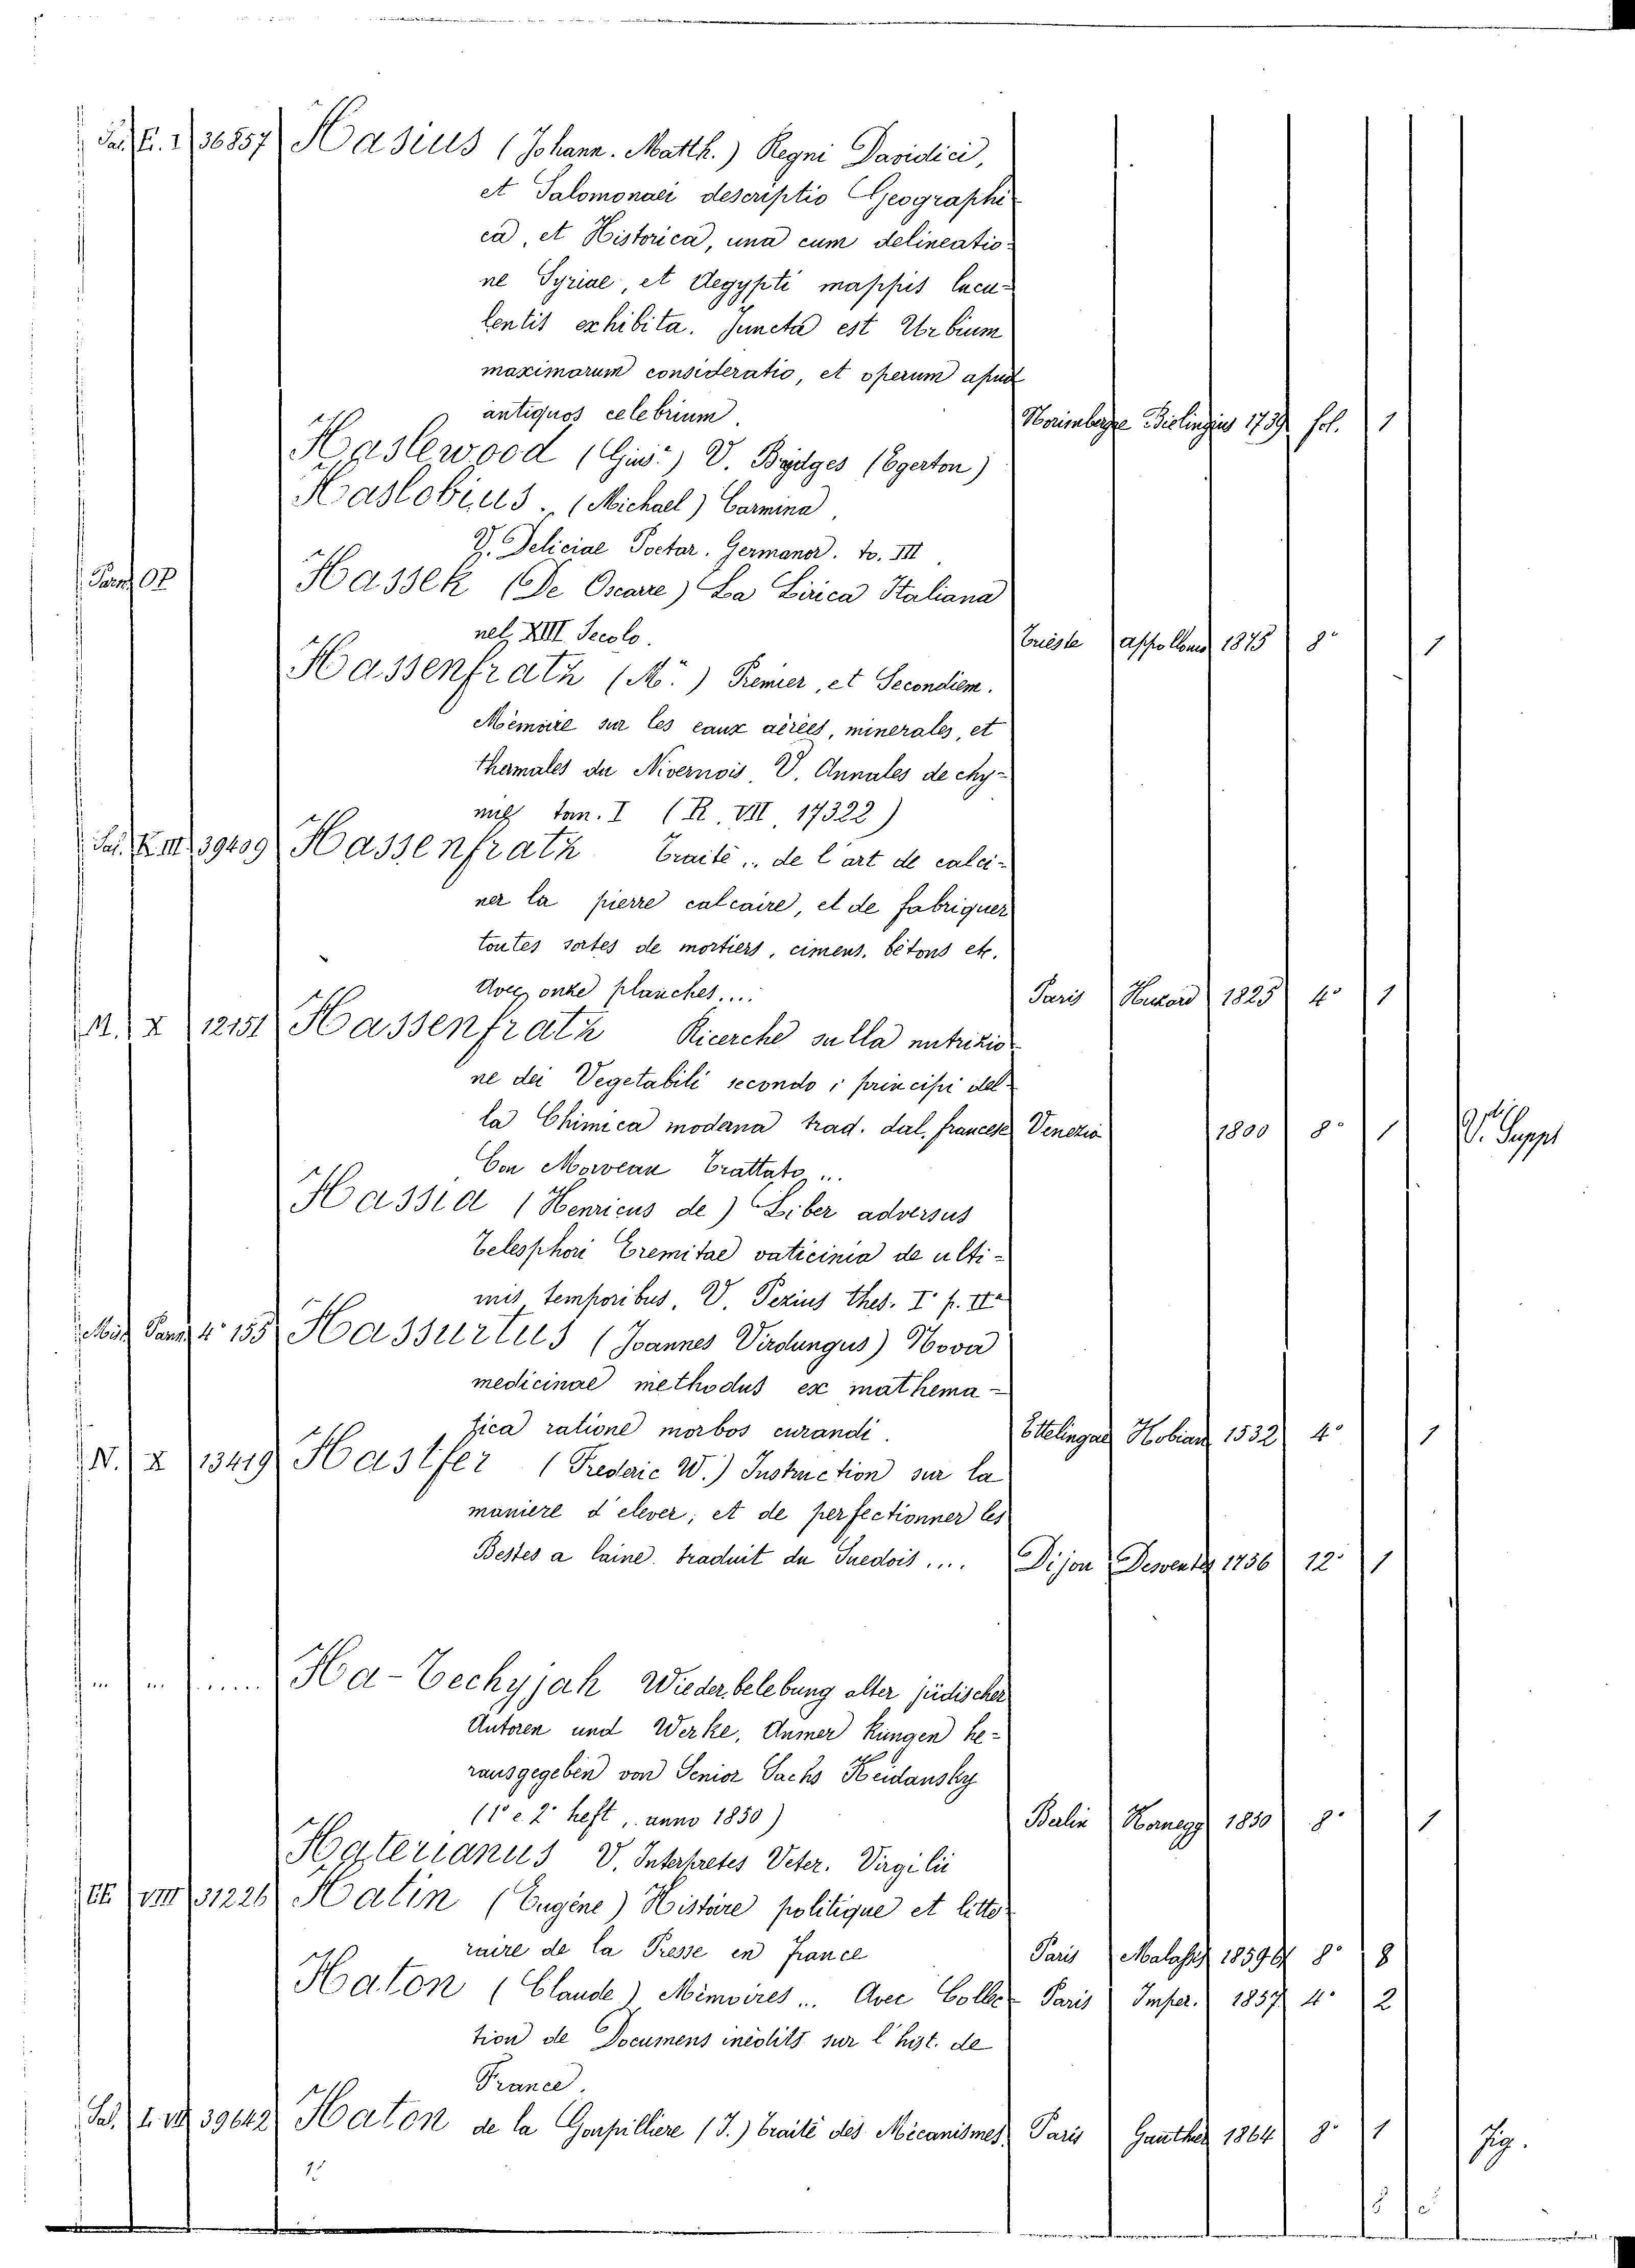 Sal. E. I 36857 Hasius (Johann. Matth.) Regni Davidici,
et Salomonaei descriptio Geographi
ca, et Historica, una cum delineatio-
ne Syriae, et Aegypti mappis lucu-
lentis exhibita. Juncta est Urbium
maximarum consideratio, et operum apud
antiquos celebrium. Norimbergae 1739 fol. 1
Haslewood (Gius.) V. Brydges (Egerton)
Haslobius. (Michael) Carmina,
V. Deliciae Poetar. Germanor. to. III.
Hassek (De Oscarre) La Lirica Italiana
nel XIII Secolo. Trieste Appollonio 1875 8° 1
Hassenfrath (M.) Premier, et Secondiem.
Mémoire sur les eaux aérées, minerales, et
thermales du Nivernois V. Annales de chy-
mie tom. I (R. VIII. 17322)
Sal. E. III 39409 Hassenfrath Traité .. de l'art de calci-
ner la pierre calcaire, et de fabriquer
toutes sortes de mortiers, cimens, bétons etc.
Avec onze planches.... Paris Huzard 1825 4° 1
M. X 12151 Hassenfrath Ricerche sulla nutrizio
ne dei Vegetabili secondo i principi del-
la Chimica moderna trad. dal francese Venezia 1800 8° 1 V. Suppl
Con Morveau Trattato...
Hassia (Henricus de) Liber adversus
Telesphori Eremitae vaticinia de ulti-
mis temporibus, V. Pezius thes. I° p. IIa
4° 155 Hassurtus (Joannes Virdungus) Nova
medicinae methodus ex mathema-
tica ratione morbos curandi. Ettelingae Kobian 1532 4° 1
N. X 13419 Hastfer (Frederic W.) Instruction sur la
maniere d'elever, et de perfectionner les
Bestes a laine. traduit du Suedois .... Dijon 1756 12° 1
... ... .... Ha-Techyjah Wiederbelebung alter jüdischer
Autoren und Werke, Anmer kungen he-
rausgegeben von Senior Sachs Keidansky
(1° e 2° heft, anno 1850) Berlin Kornegg 1850 8° 1
Haterianus V. Interpretes Veter. Virgilii
VIII 31226 Hatin (Eugène) Histoire politique et litte-
raire de la Presse en France Paris Malassis 8° 8
Haton (Claude) Mémoires ... Avec Collec- Paris Imper. 1857 4° 2
tion de Documens inédits sur l'hist. de
France.
39642 Haton de la Goupilliere (J.) Traité des Mécanismes Paris Gauthier 1864 8° 1 fig.